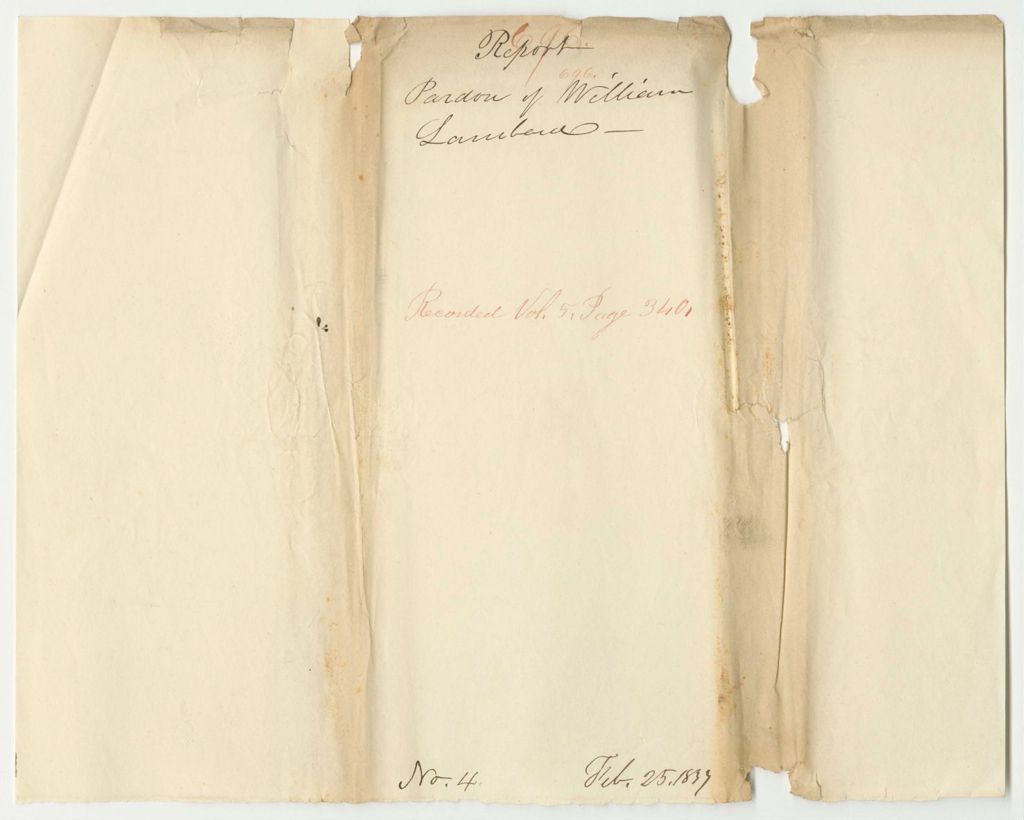 Report
696.
Pardon of William
Lambard —
Recorded Vol. 5. Page 340.
No. 4.
Feb. 25. 1837